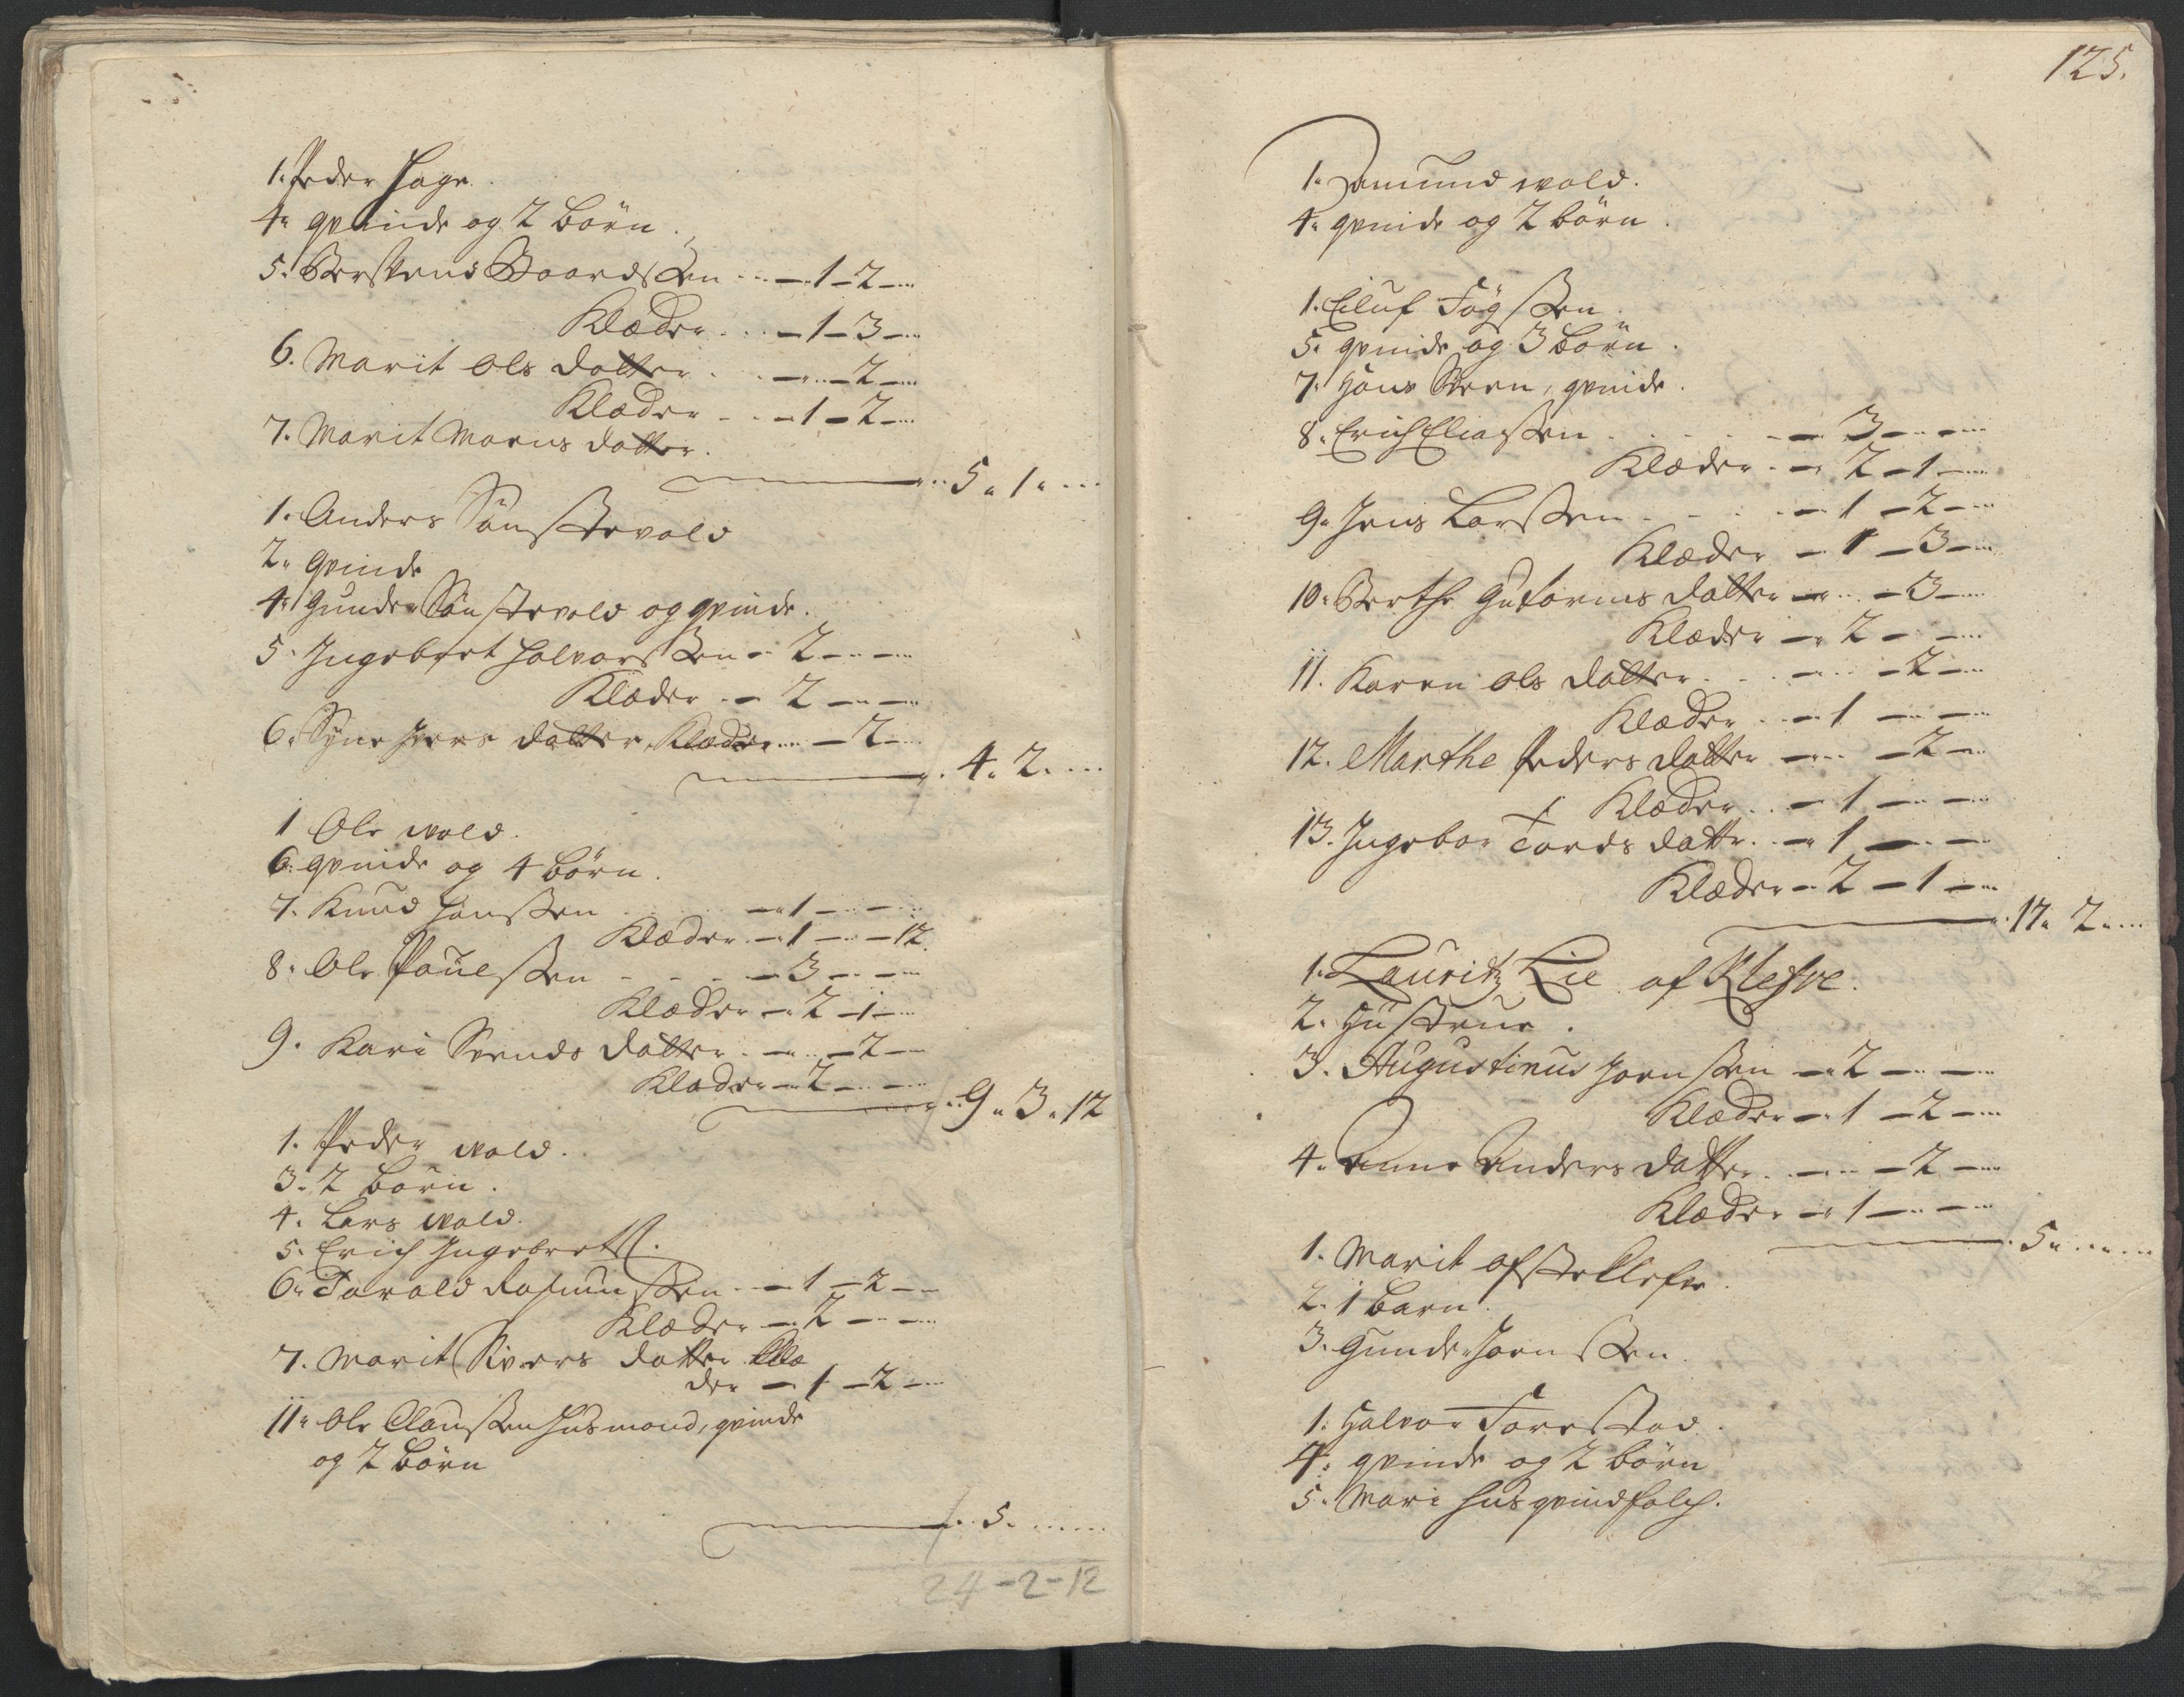 1. Peder Hage.
4. qvinde og 2 börn.
5. Berswend Baardssen - 1 - 2 -
Klæder - 1 - 3 -
6. Marit Ols datter - 2 -
Klæder - 1 - 2 -
7. Marit Moens datter.
5. 1.
1. Anders Sönstevold
2. qvinde
4. Gunder Sönstevold og qvinde.
5. Ingebret Halvorssen - 2 -
Klæder - 2 -
6. Syne Ivers datter, Klæder - 2 -
4. 2.
1 Ole wold.
6. qvinde og 4 börn.
7. Knud Hanssen - 1 -
Klæder - 1 - 12.
8. Ole Poulssen - 3 -
Klæder - 2 - 1 -
9. Kari Svends datter - 2 -
Klæder - 2 -
9. 3. 12
1. Peder wold.
3. 2 börn.
4. Lars wold.
5. Erich Ingebretss.
6. Torald Rasmussen - 1 - 2 -
Klæder - 2 -
7. Marit Sivers datter Klæ
der - 1 - 2 -
11. Ole Claussen Husmand, qvinde
og 2 börn
5.
24-2-12
125.
1. Amund wold.
4. qvinde og 2 börn.
1. Eiluf
5. qvinde og 3 börn.
7. Hans qvinde.
8. Erich Eliassen - 3 -
Klæder - 2 - 1 -
9. Jens Larssen - 1 - 2 -
Klæder - 1 - 3 -
10. Berthe Gutorms datter - 3 -
Klæder - 2 -
11. Karen Ols datter - 2 -
Klæder - 1 -
12. Marthe Peders datter - 2 -
Klæder - 1 -
13. Ingebor Tords datter - 1 -
Klæder - 2 - 1 -
17. 2.
1. Lauritz Lie af Klefve.
2. Hustrue.
3. Augustinus Joenssen - 2 -
Klæder - 1 - 2 -
4. Anne Anders datter - 2 -
Klæder - 1 -
5.
1. Marit
2. 1 Barn.
3. Gunder Joenssen.
1. Halvor Torestad.
4. qvinde og 2 börn
5. Mari Husqvindfolch.
22-2-